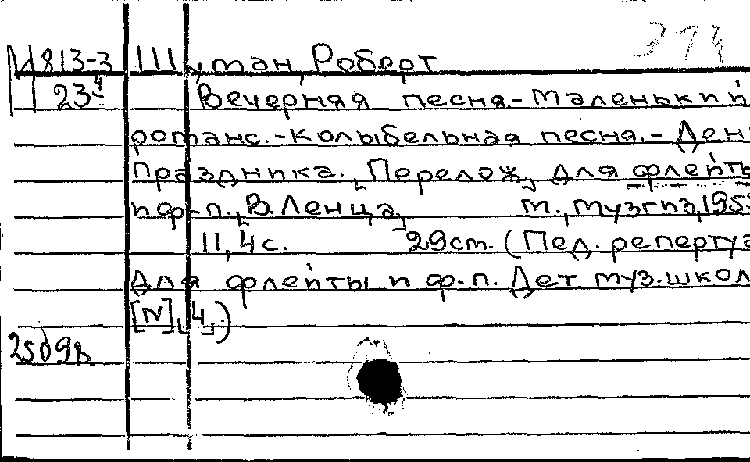 М 813-3 Шуман, Роберт
23⁴ Вечерняя песня.-Маленький
романс.-Колыбельная песня.-День
праздника. Перелож. для флейты
и ф-п. В. Ленца. М., Музгиз, 195
11, 4 с. 29 см. (Пед. репертуа
для флейты и ф.-п. Дет муз. школ
[N], 4.)